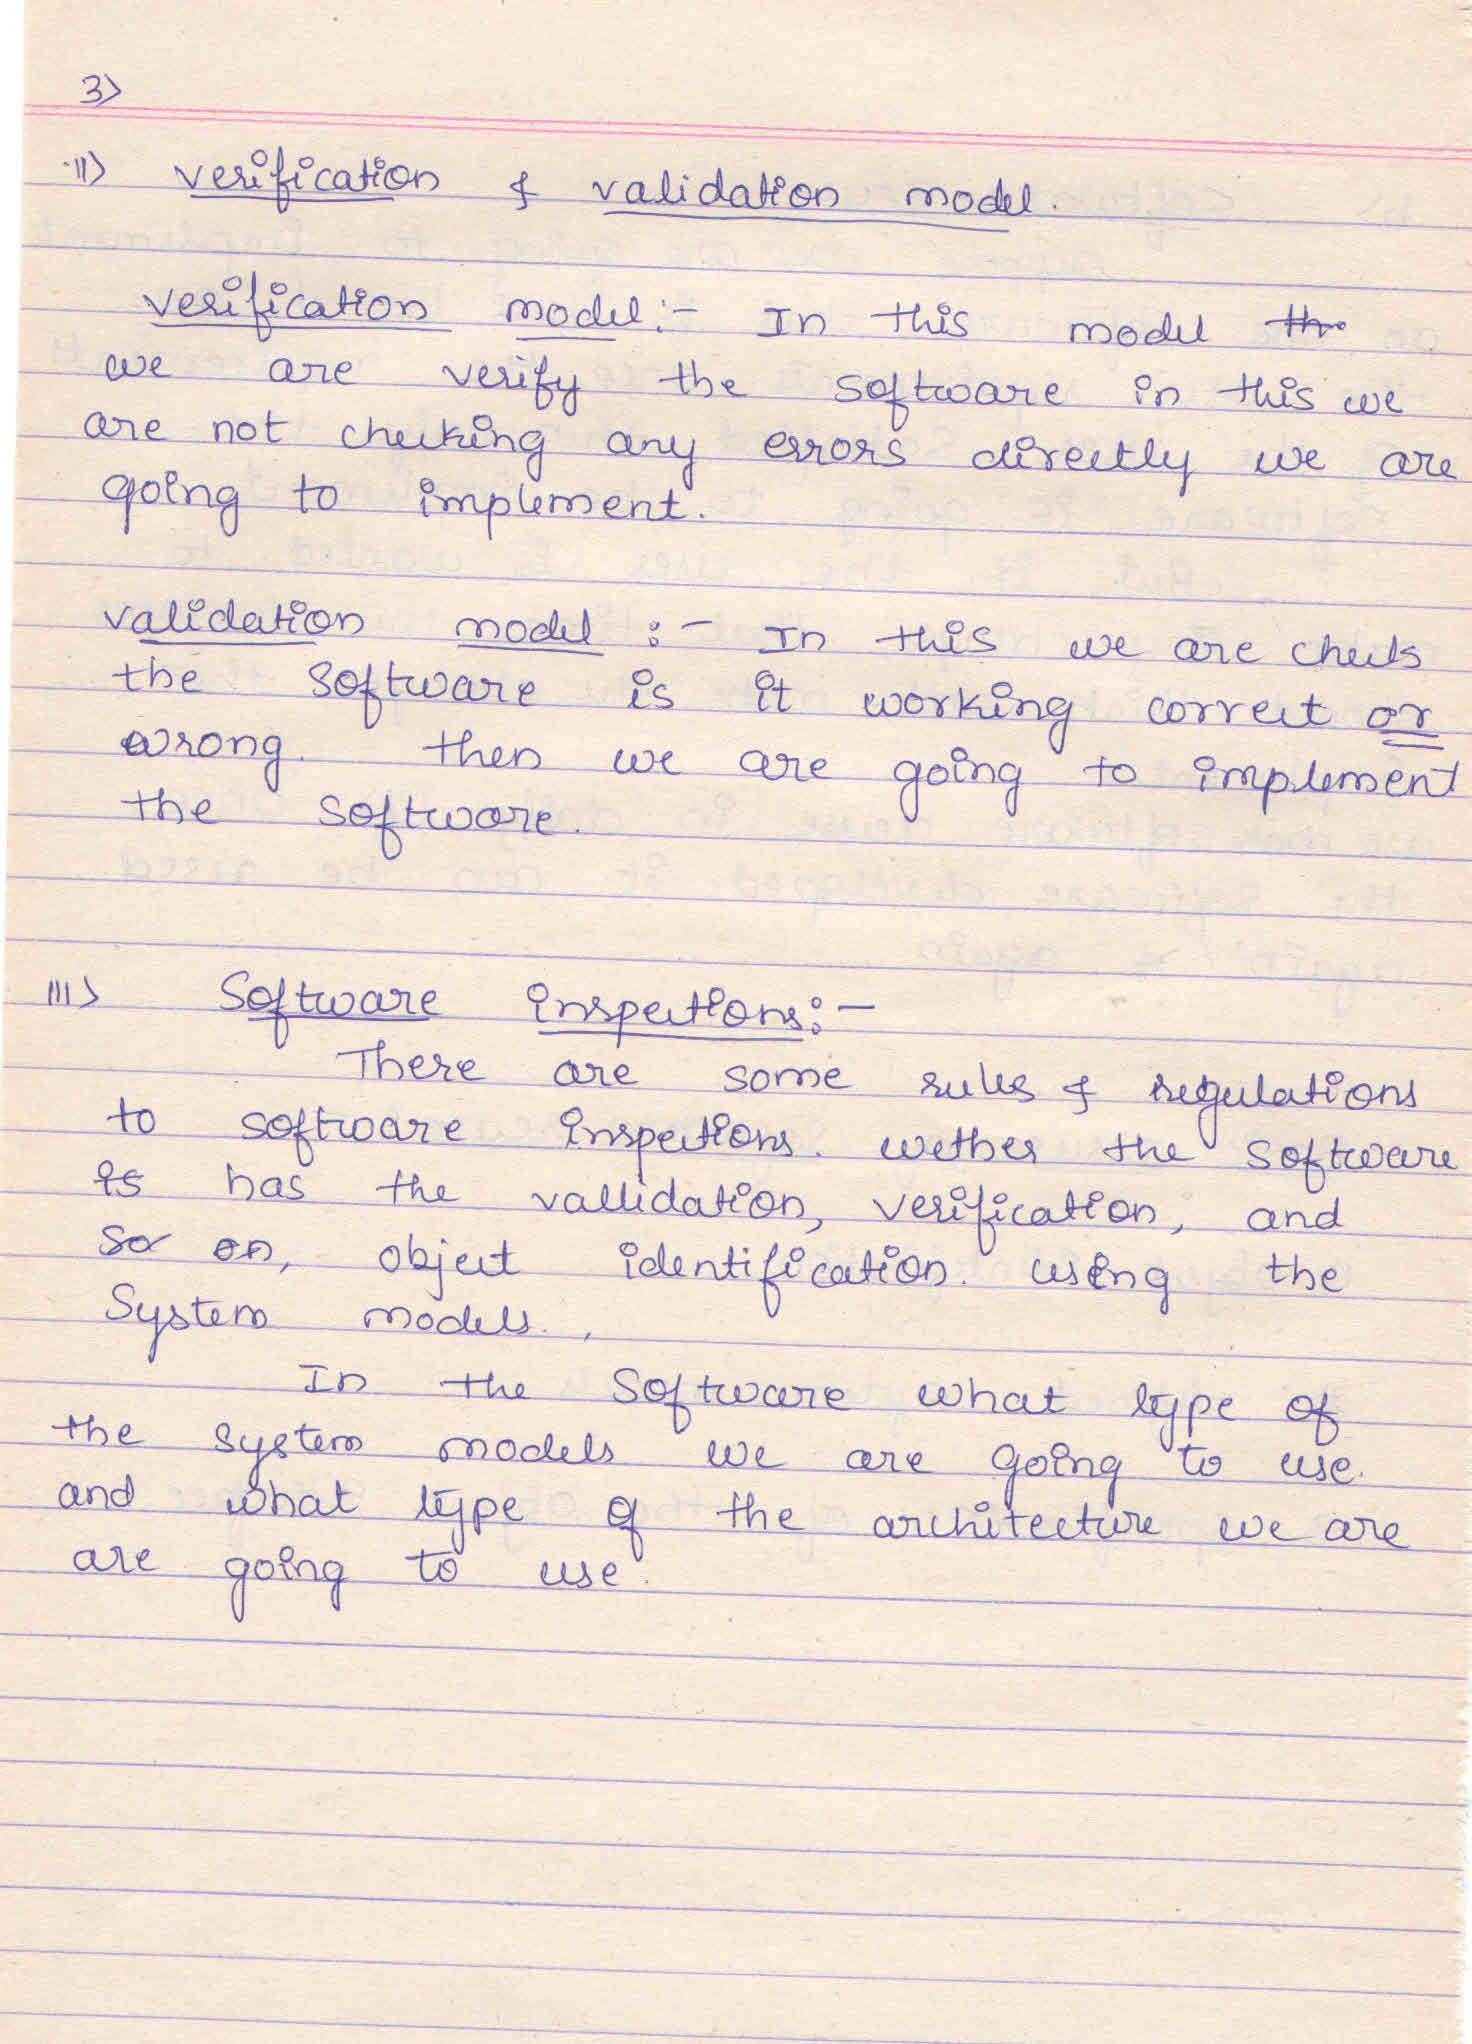 3)
ii) verification & validation model.
verification model:- In this model the
we are verify the software in this we
are not checking any errors directly we are
going to implement.
validation model :- In this we are check
the software is it working correct or
wrong. then we are going to implement
the software.
iii) Software inspections:-
There are some rules & regulations
to software inspections. wether the software
is has the vallidation, verification, and
so on, object identification. using the
System models.
In the software what type of
the system models we are going to use.
and what type of the architecture we are
are going to use.